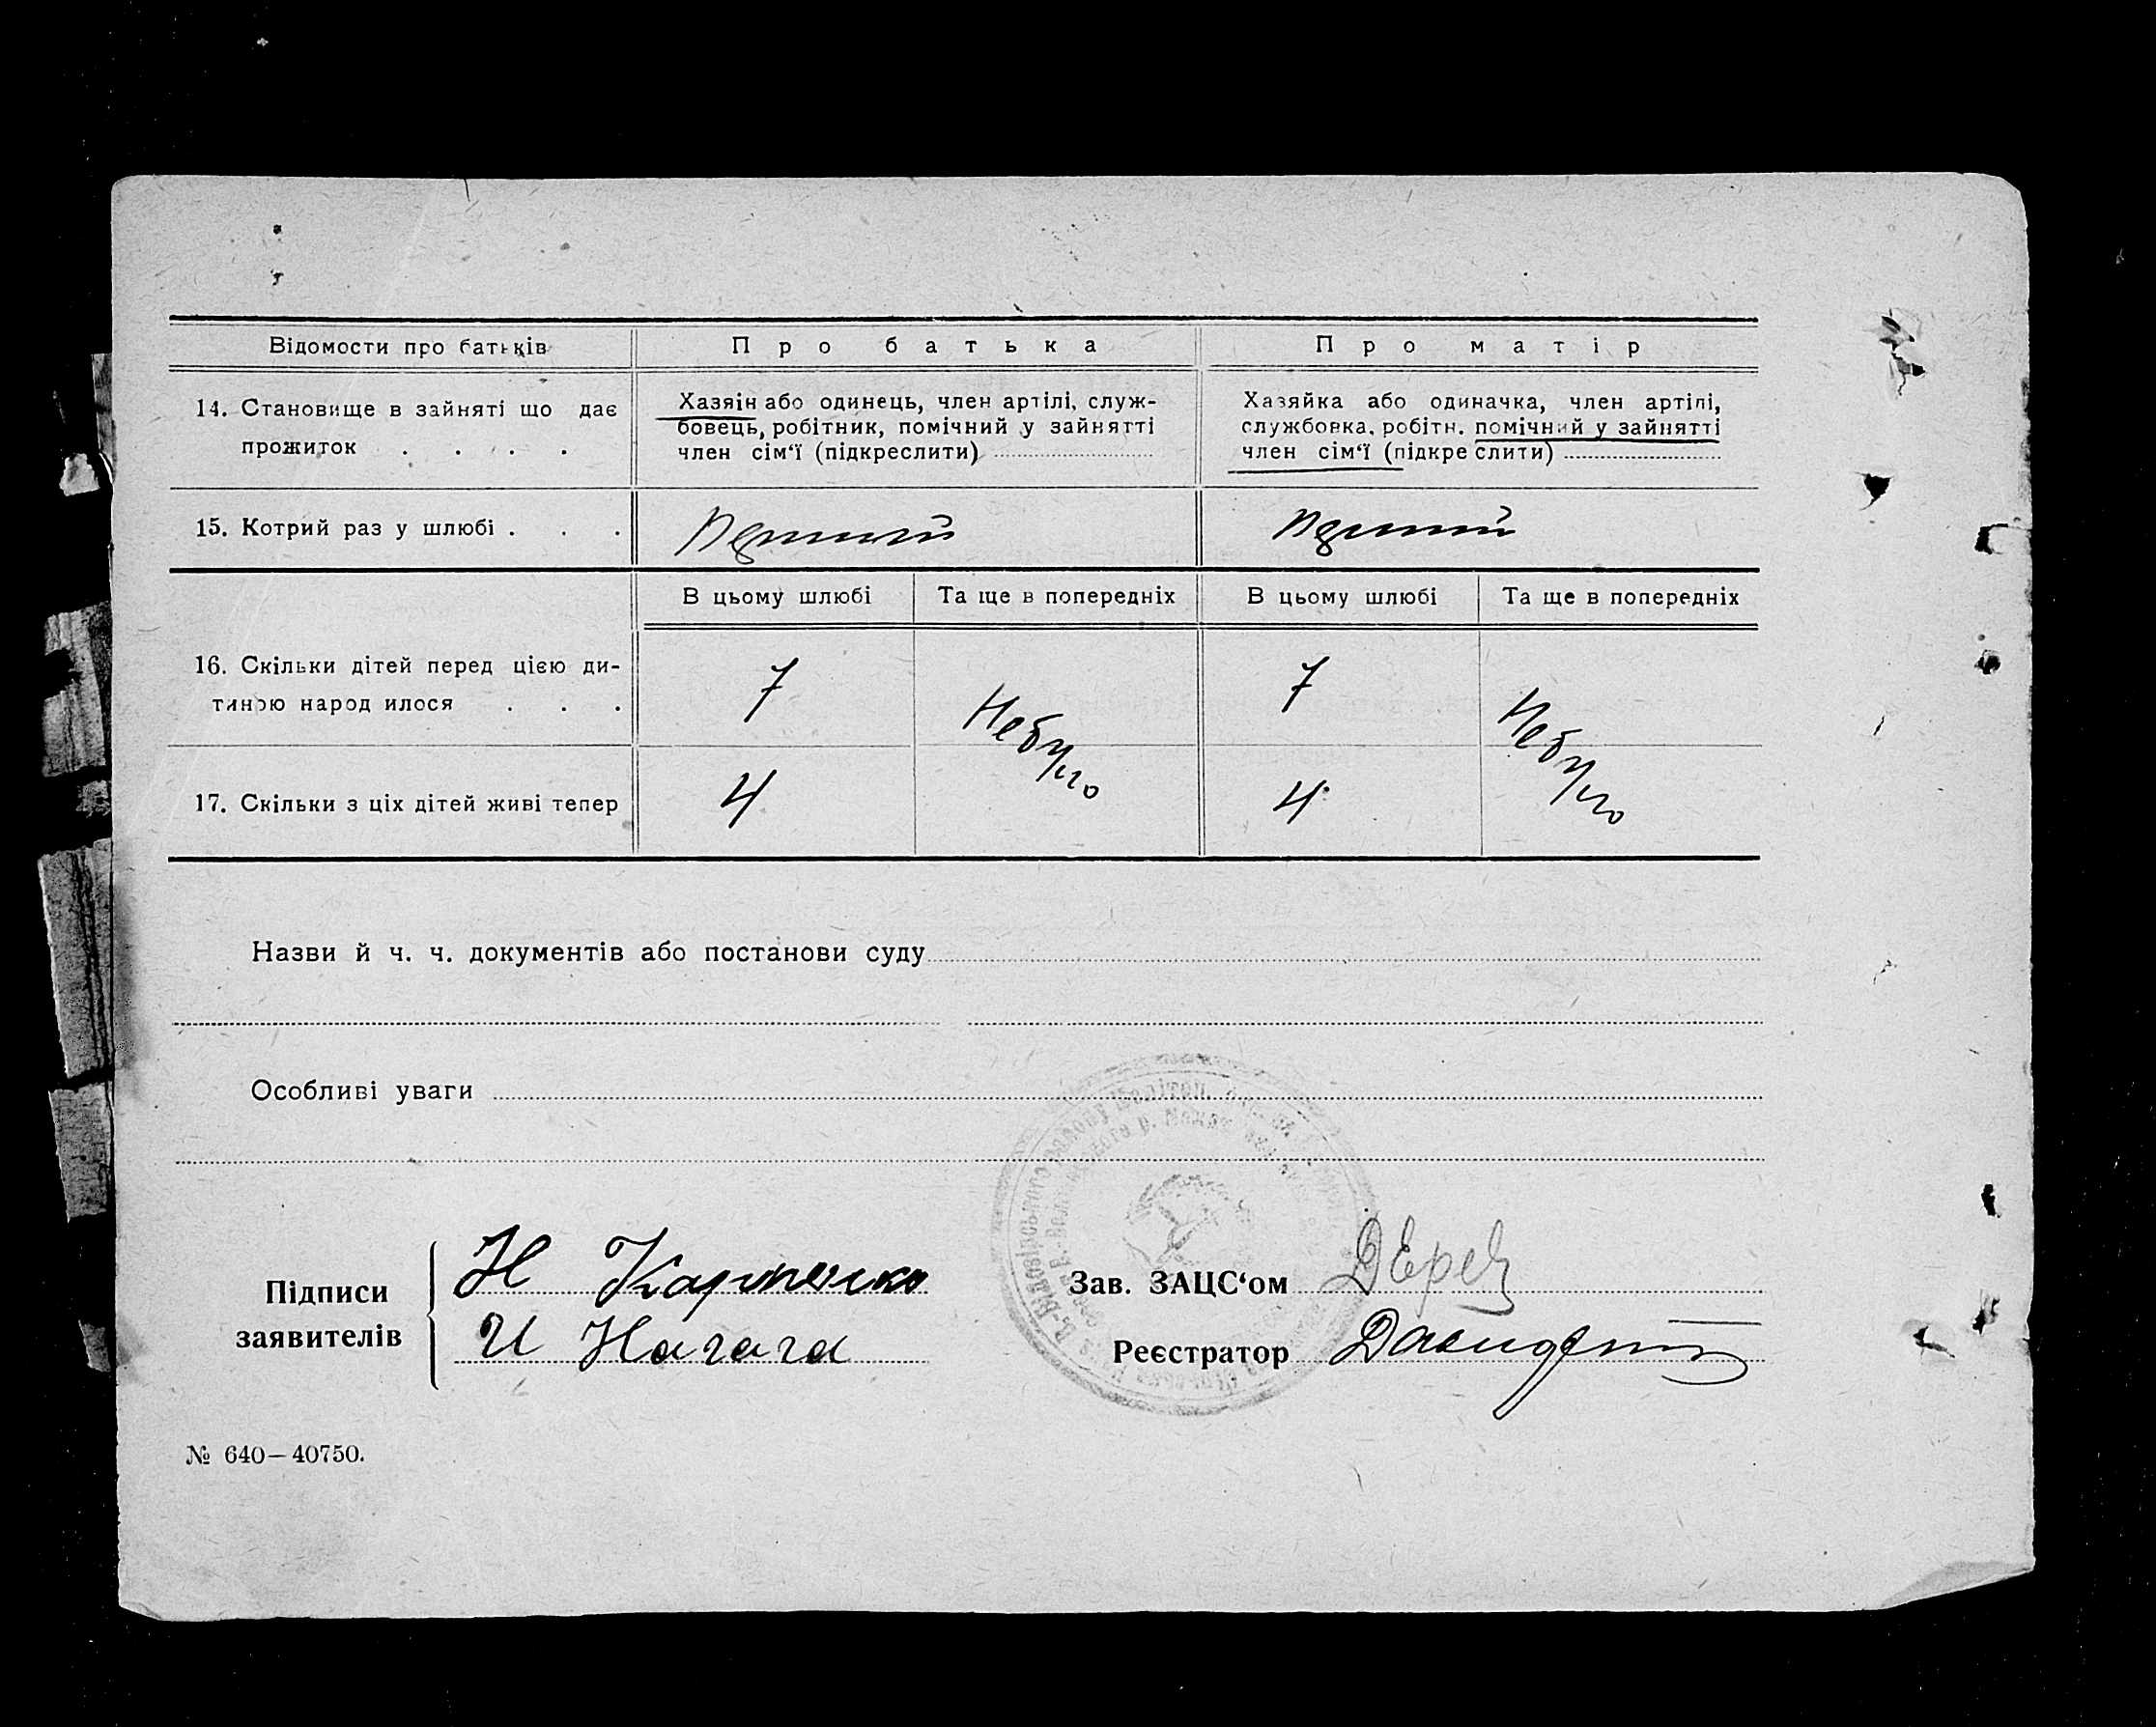 Відомости про батьків
Про батька
Про матір
14. Становище в зайняті що дає
прожиток . . . .
Хазяін або одинець, член артілі, служ-
бовець, робітник, помічний у зайнятті
член сім‘ї (підкреслити)
Хазяйка або одиначка, член артілі,
службовка, робітн. помічний у зайнятті
член сім‘ї (підкреслити)
15. Котрий раз у шлюбі . . .
Перший
Перший
В цьому шлюбі
Та ще в попередніх
В цьому шлюбі
Та ще в попередніх
16. Скільки дітей перед цією ди-
тиною народилося . . .
7
Небуло
7
Небуло
17. Скільки з ціх дітей живі тепер
4
4
Назви й ч. ч. документів або постанови суду
Особливі уваги
Підписи
заявителів
Н Карпенко
И Нагога
Зав. ЗАЦС‘ом
Реєстратор
№ 640—40750.